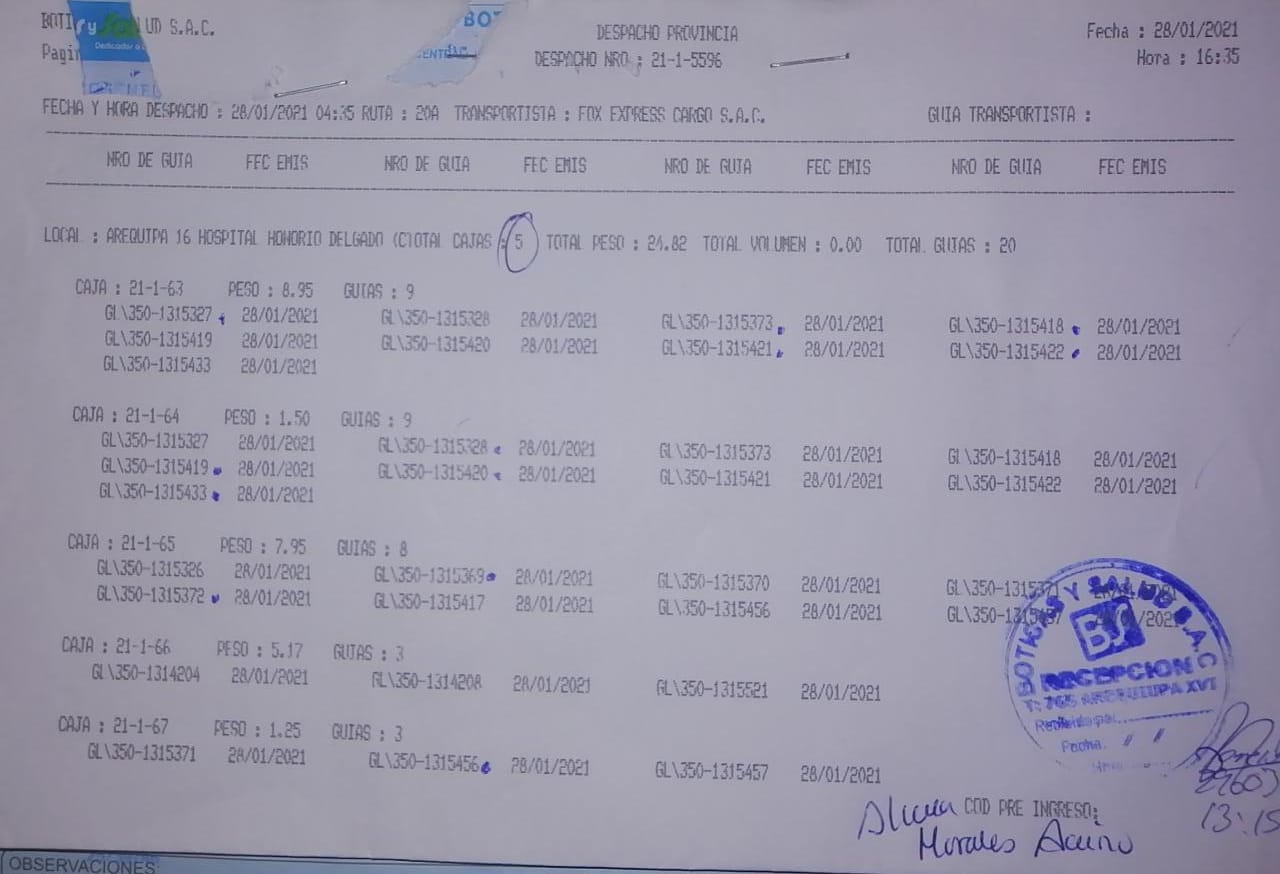 BOTI UD S.A.C. BOT DESPACHO PROVINCIA Fecha : 28/01/2021
Pagin DESPACHO NRO : 21-1-5596 Hora : 16:35
FECHA Y HORA DESPACHO : 28/01/2021 04:35 RUTA : 20A TRANSPORTISTA : FOX EXPRESS CARGO S.A.C. GUIA TRANSPORTISTA :
NRO DE GUIA FEC EMIS NRO DE GUIA FEC EMIS NRO DE GUIA FEC EMIS NRO DE GUIA FEC EMIS
LOCAL : AREQUIPA 16 HOSPITAL HONORIO DELGADO (C)OTAL CAJAS : 5 TOTAL PESO : 24.82 TOTAL VOLUMEN : 0.00 TOTAL GUIAS : 20
CAJA : 21-1-63 PESO : 8.95 GUIAS : 9
GL\350-1315327 28/01/2021 GL\350-1315328 28/01/2021 GL\350-1315373 28/01/2021 GL\350-1315418 28/01/2021
GL\350-1315419 28/01/2021 GL\350-1315420 28/01/2021 GL\350-1315421 28/01/2021 GL\350-1315422 28/01/2021
GL\350-1315433 28/01/2021
CAJA : 21-1-64 PESO : 1.50 GUIAS : 9
GL\350-1315327 28/01/2021 GL\350-1315328 28/01/2021 GL\350-1315373 28/01/2021 GL\350-1315418 28/01/2021
GL\350-1315419 28/01/2021 GL\350-1315420 28/01/2021 GL\350-1315421 28/01/2021 GL\350-1315422 28/01/2021
GL\350-1315433 28/01/2021
CAJA : 21-1-65 PESO : 7.95 GUIAS : 8
GL\350-1315326 28/01/2021 GL\350-1315369 28/01/2021 GL\350-1315370 28/01/2021 GL\350-1315371
GL\350-1315372 28/01/2021 GL\350-1315417 28/01/2021 GL\350-1315456 28/01/2021 GL\350-1315457
CAJA : 21-1-66 PESO : 5.17 GUIAS : 3
GL\350-1314204 28/01/2021 GL\350-1314208 28/01/2021 GL\350-1315521 28/01/2021
CAJA : 21-1-67 PESO : 1.25 GUIAS : 3
GL\350-1315371 28/01/2021 GL\350-1315456 28/01/2021 GL\350-1315457 28/01/2021
BOTICAS Y SALUD S.A.C
RECEPCION
T: 765 AREQUIUPA XVI
Recibido por
Fecha. / /
13:15
COD PRE INGRESO:
Morales
OBSERVACIONES